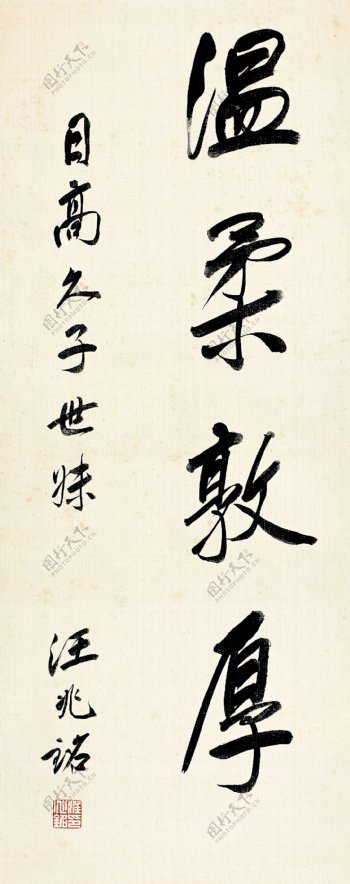 温柔敦厚
日高久子世妹
汪兆铭
图行天下
PHOTOPHOTO.CN